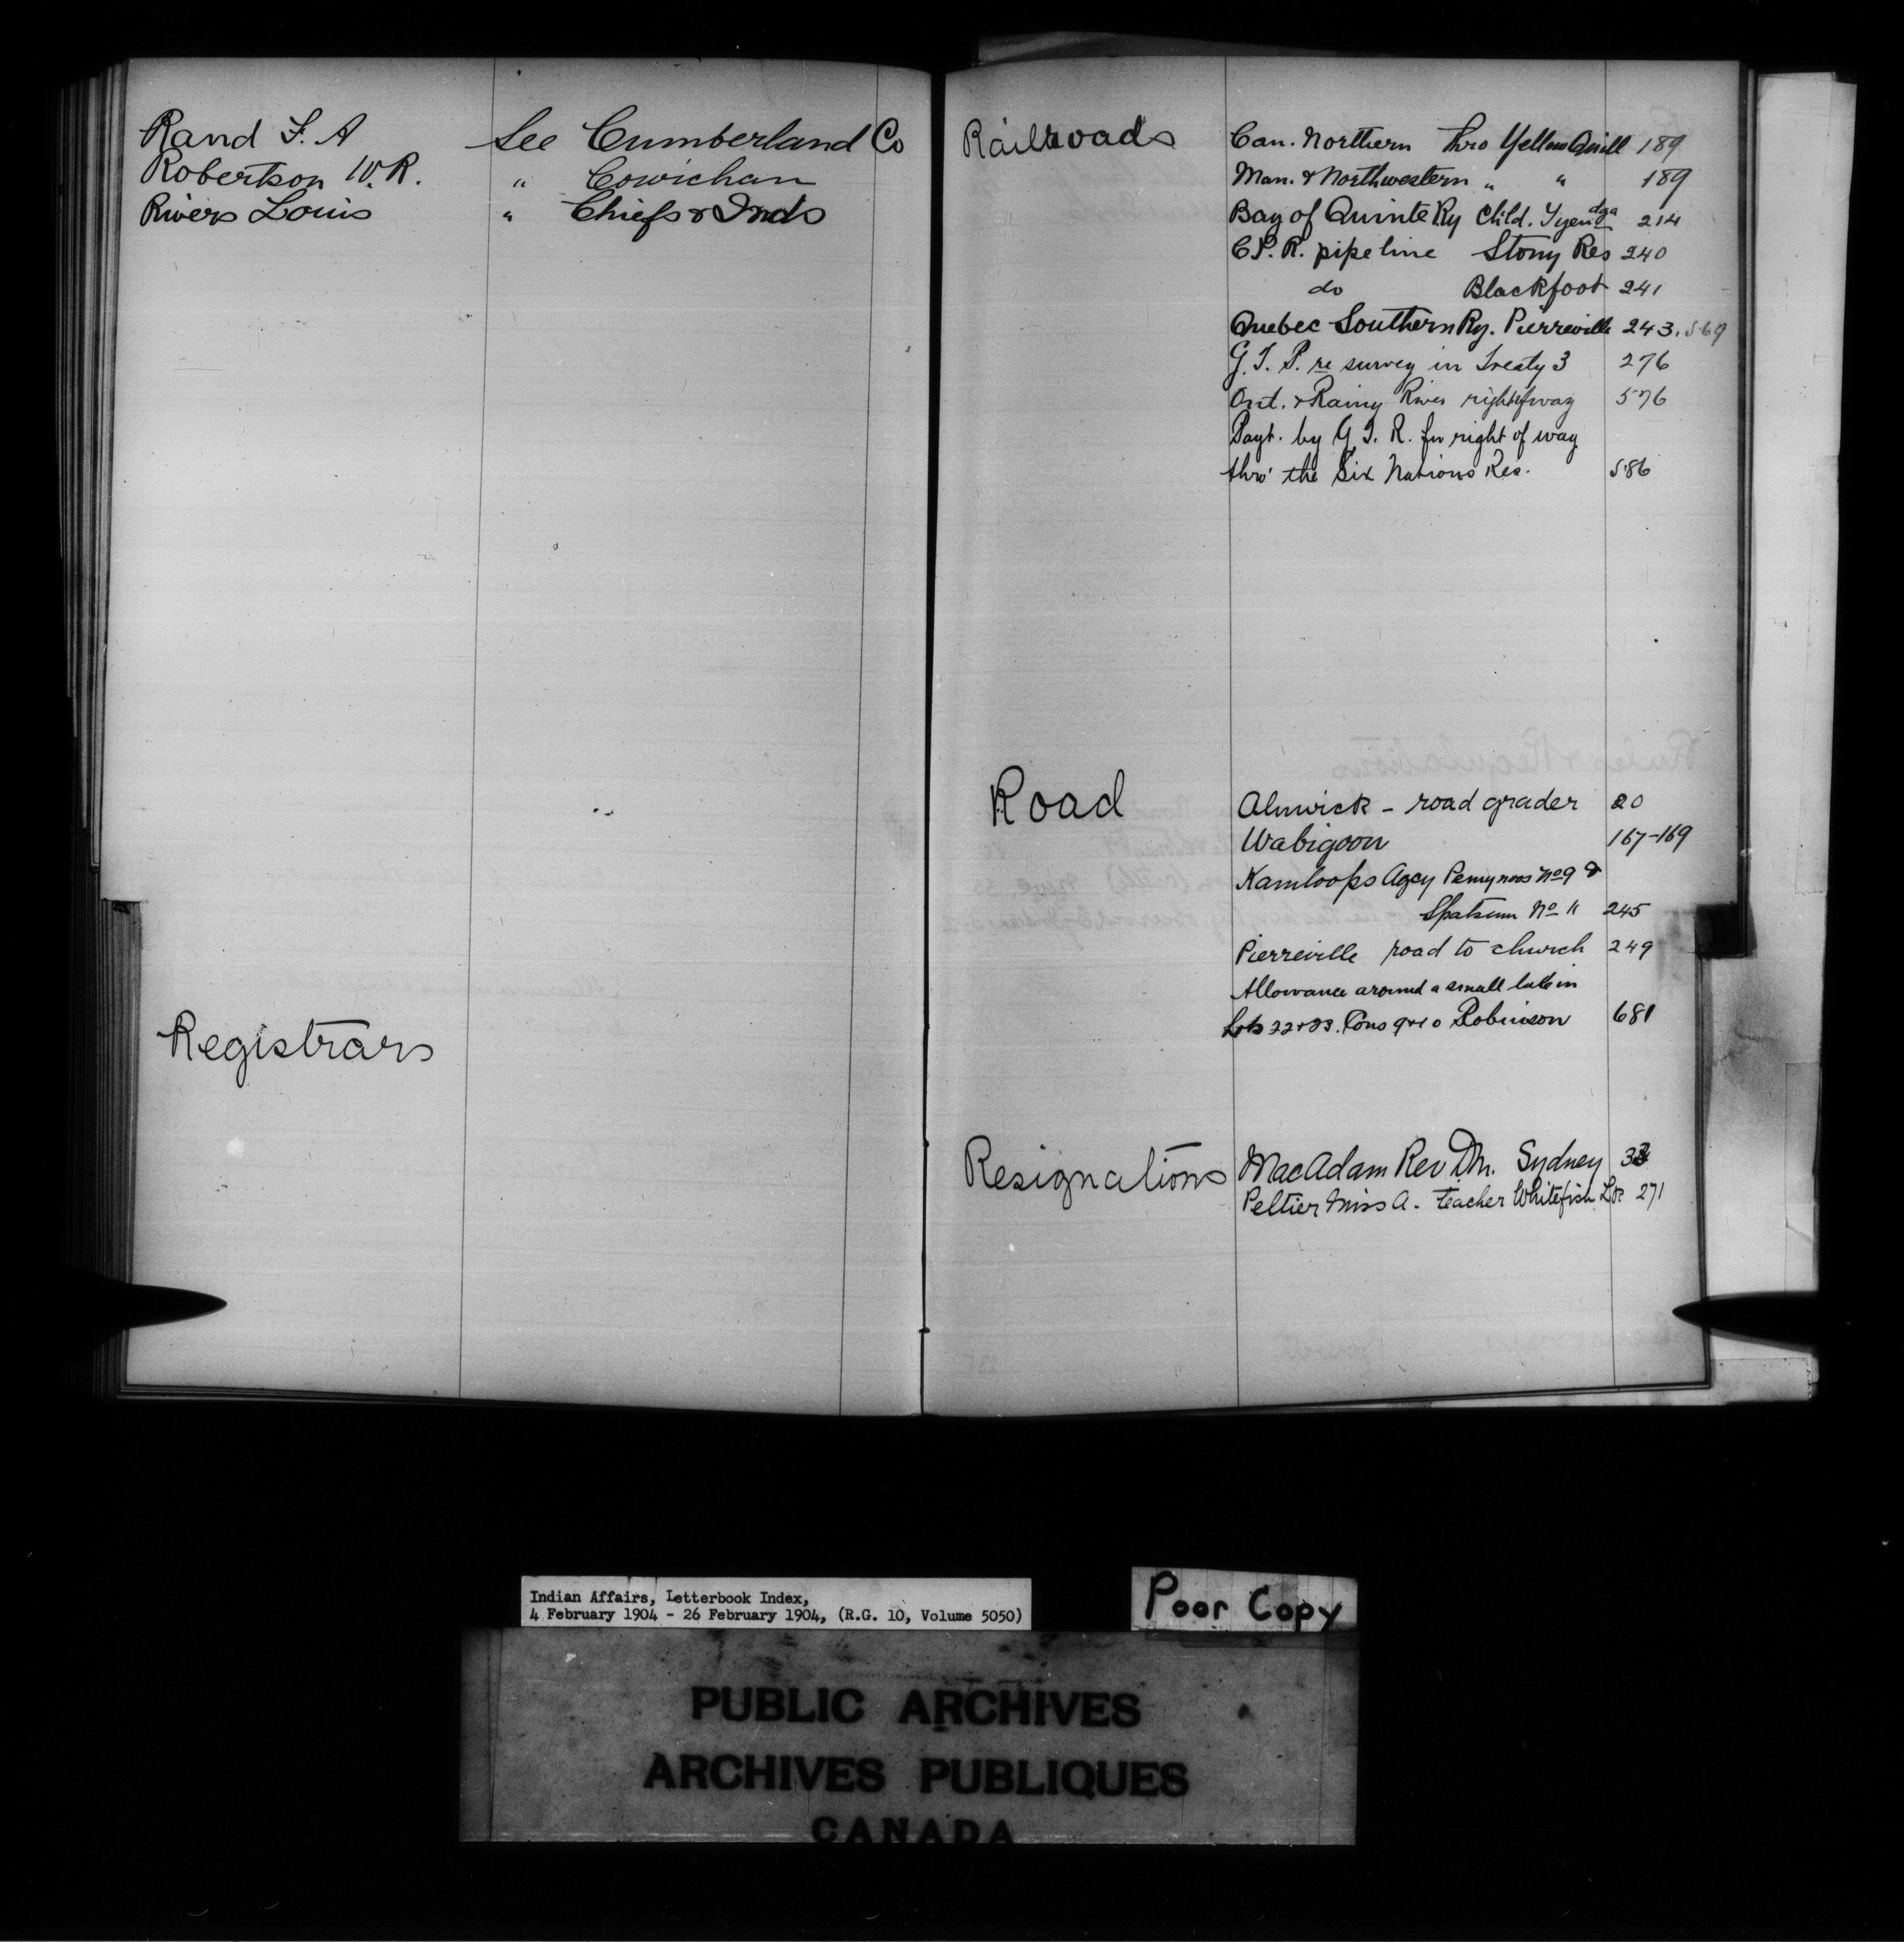 Rand F. A See Cumberland Co
Robertson W. R. " Cowichan
Rivers Louis " Chiefs & Inds
Registrars
Railroads Can. Northern thro Yellow Quill 189
Man. & Northwestern " " 189
Bay of Quinte Ry Child. Tyendga 214
C.P.R. pipe line Stony Res 240
do Blackfoot 241
Quebec Southern Ry. Pierreville 243. 569
G.T.P. re survey in Treaty 3 276
Ont. & Rainy River right of way 576
Payt. by G.T.R. for right of way
thro' the Six Nations Res. 586
Road Alnwick - road grader 20
Wabigoon 167-169
Kamloops Agcy Pemynoos No 9 &
Spatsum No 11 245
Pierreville road to church 249
Allowance around a small lake in
Lots 22 & 23. Cons 9 & 10 Robinson 681
Resignations MacAdam Rev D.M. Sydney
Peltier Miss A. teacher Whitefish Lke 271
Indian Affairs, Letterbook Index,
4 February 1904 - 26 February 1904, (R.G. 10, Volume 5050)
Poor Copy
PUBLIC ARCHIVES
ARCHIVES PUBLIQUES
CANADA